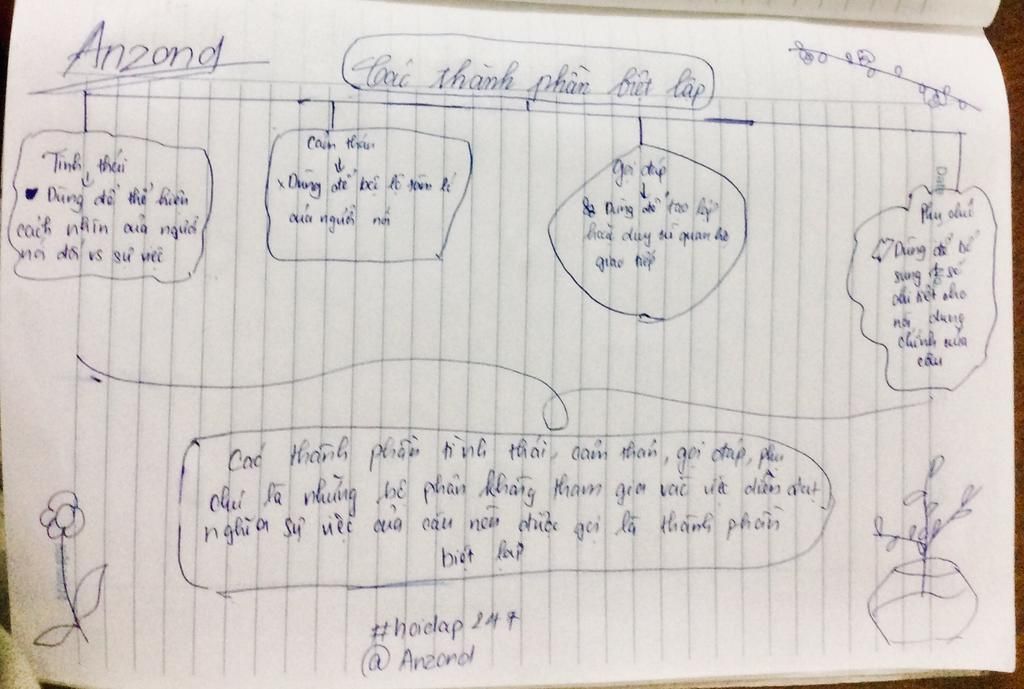 Anzond
Các thành phần biệt lập
Tình thái
Dùng để thể hiện
cách nhìn của người
nói đối vs sự việc
Cảm thán
Dùng để bộc lộ tâm lí
của người nói
Gọi đáp
Dùng để tạo lập
hoặc duy trì quan hệ
giao tiếp
Date
Phụ chú
Dùng để bổ
sung 1 số
chi tiết cho
nội dung
chính của
câu
Các thành phần tình thái, cảm thán, gọi đáp, phụ
chú là những bộ phận không tham gia vào việc diễn đạt
nghĩa sự việc của câu nên được gọi là thành phần
biệt lập
#hoidap247
@Anzond